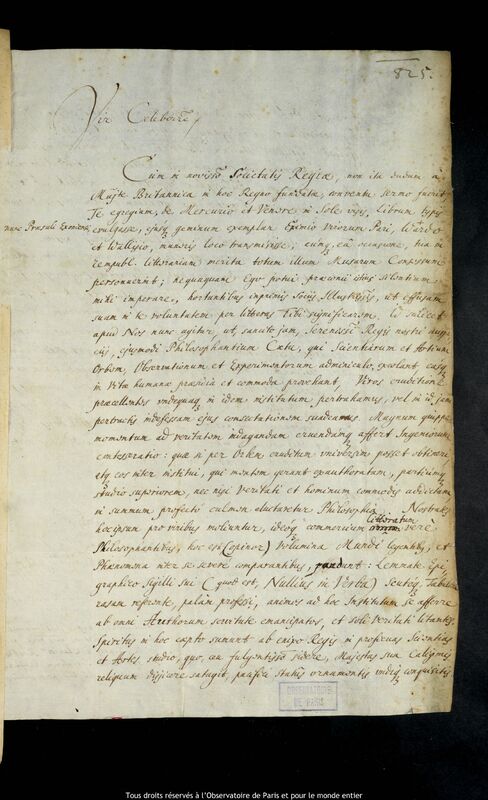 825.
Vir Celeberrime,
Cum in novissimo Societatis Regiæ, non ita dudum a
Majte Britannica in hoc Regno fundatæ, conventu sermo fuerit
Te egregium, de Mercurio et Venere in Sole visis, librum typis
nunc Præsuli Exoniensi,
evulgasse, ejusq geminum exemplar Eximio Virorum Pari, Wardo
et Wallisio, muneris loco transmisisse; cumq, ea occasione, tua in
Rempubl. litterariam merita totum illum Musarum Consessum
personuerint; nequaquam Ego potui præconii istius Silentium
mihi imperare, hortantibus inprimis Sociis Illustrissis, ut effusam
suam in te voluntatem per literas Tibi significarem. Id scilicet
apud Nos nunc agitur, ut, sancito jam, Serenissi Regis nostri auspi
ciis, ejusmodi Philosophantium Cœtu, qui Scientiarum et Artium
Orbem, Observationum et Experimentorum adminiculo, excolant easq
in Vitæ humanæ præsidia et commoda provehant, Viros eruditione
præcellentes undequaq in idem institutum pertrahamus, vel in id jam
pertractis indefessam ejus consectationem suadeamus. Magnum quippe
momentum ad veritatem indagandam eruendamq affert Ingeniorum
contesseratio: quæ si per Orbem eruditum universim posset obtineri
etq eos inter institui, qui mentem gerant exauthoratam, partiumq
studio superiorem, nec nisi Veritati et hominum commodis addictam
in summum profecto culmen eluctaretur Philosophia. Nostrates
hoc ipsum pro viribus moliuntur, ideoq commercium litterarium cum verè
Philosophantibus, hoc est (opinor) Volumina Mundi legentibus, et
Phænomena inter se severè comparantibus, pandunt: Lemmate Epi
graphico Sigilli sui (quod est, Nullius in Verba) Scutoq, Tabulam
rasam referente, palam professi, animos ad hoc Institutum se afferre
ab omni Authorum servitute emancipatos, et soli Veritati litantes.
Spiritus in hoc capto sumunt ab enixo Regis in profectus Scientias
et Artes studio, quo, ceu fulgentissimo sidere, Majestas sua Caliginis
reliquum disjicere satagit, passisq Statûs ornamentis undiq conquisitis
OBSERVATOIRE
DE PARIS
Tous droits réservés à l'Observatoire de Paris et pour le monde entier